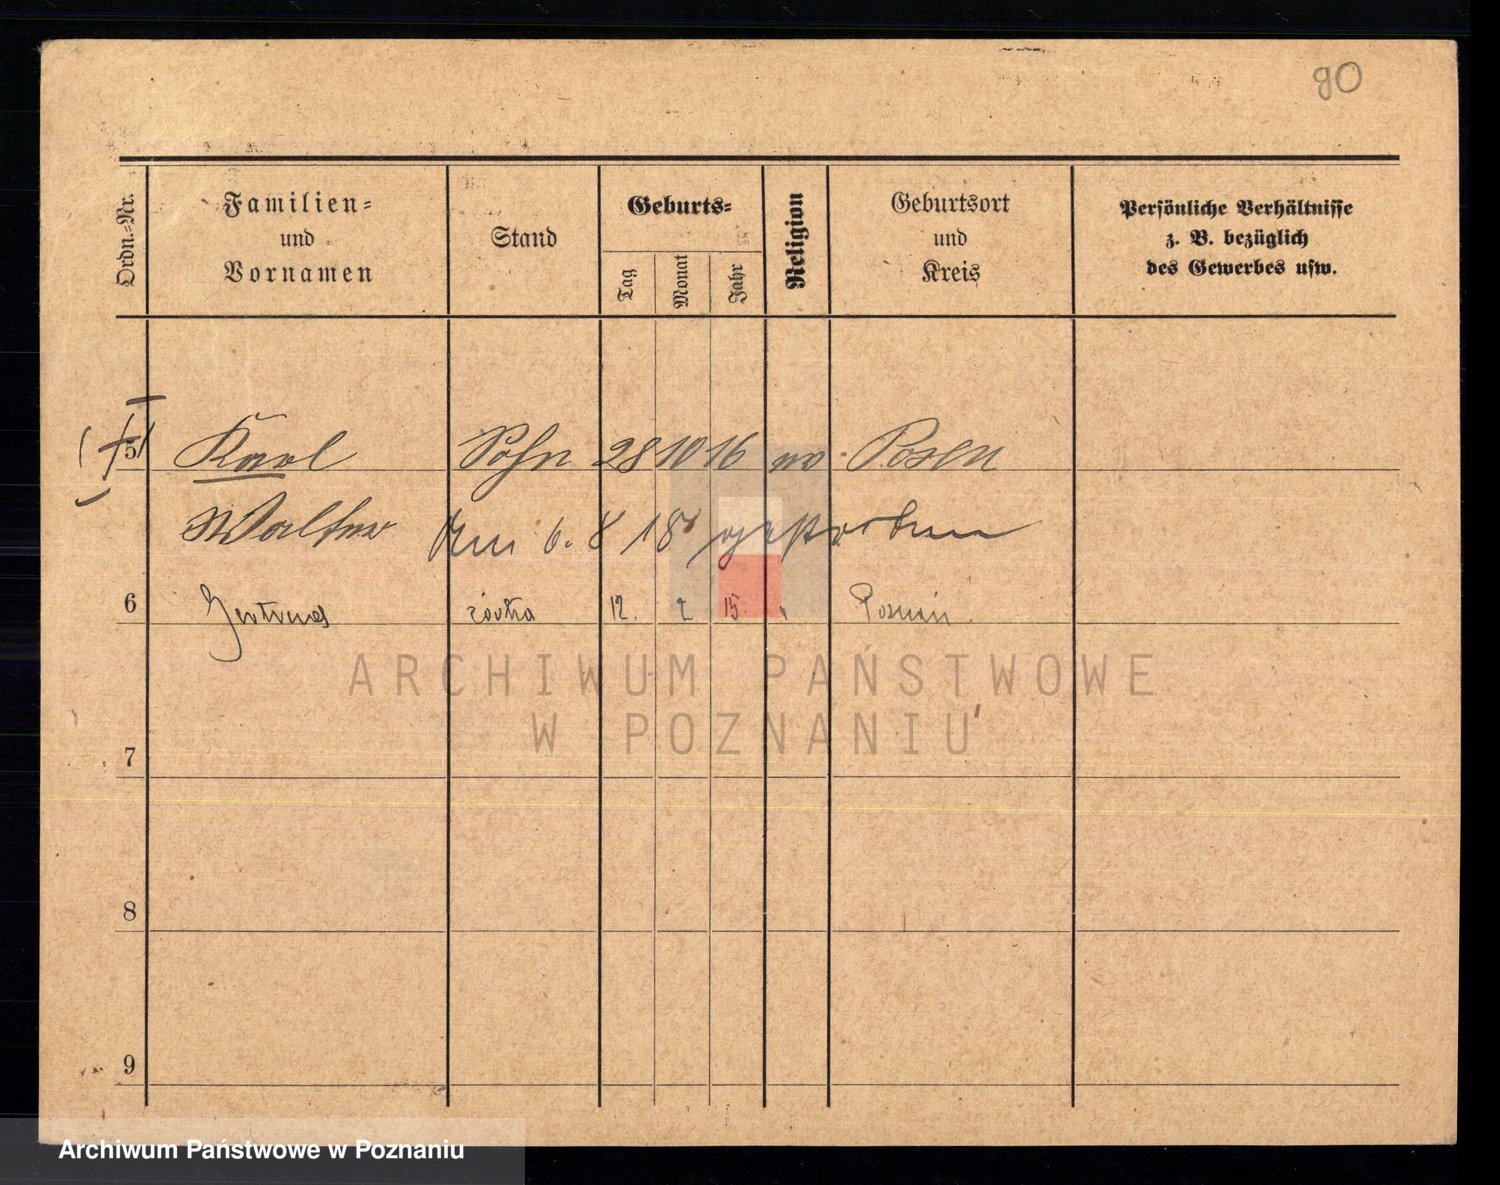 90
Ordn.=Nr.
Familien=
und
Vornamen
Stand
Geburts=
Tag
Monat
Jahr
Religion
Geburtsort
und
Kreis
Persönliche Verhältnisse
z. B. bezüglich
des Gewerbes usw.
5 Karl Sohn 28 10 16 Posen
Walter Am 6. 8 18 gestorben
6 Gertrud córka 12. 2 15. " Poznań
ARCHIWUM PAŃSTWOWE
W POZNANIU
7
8
9
Archiwum Państwowe w Poznaniu